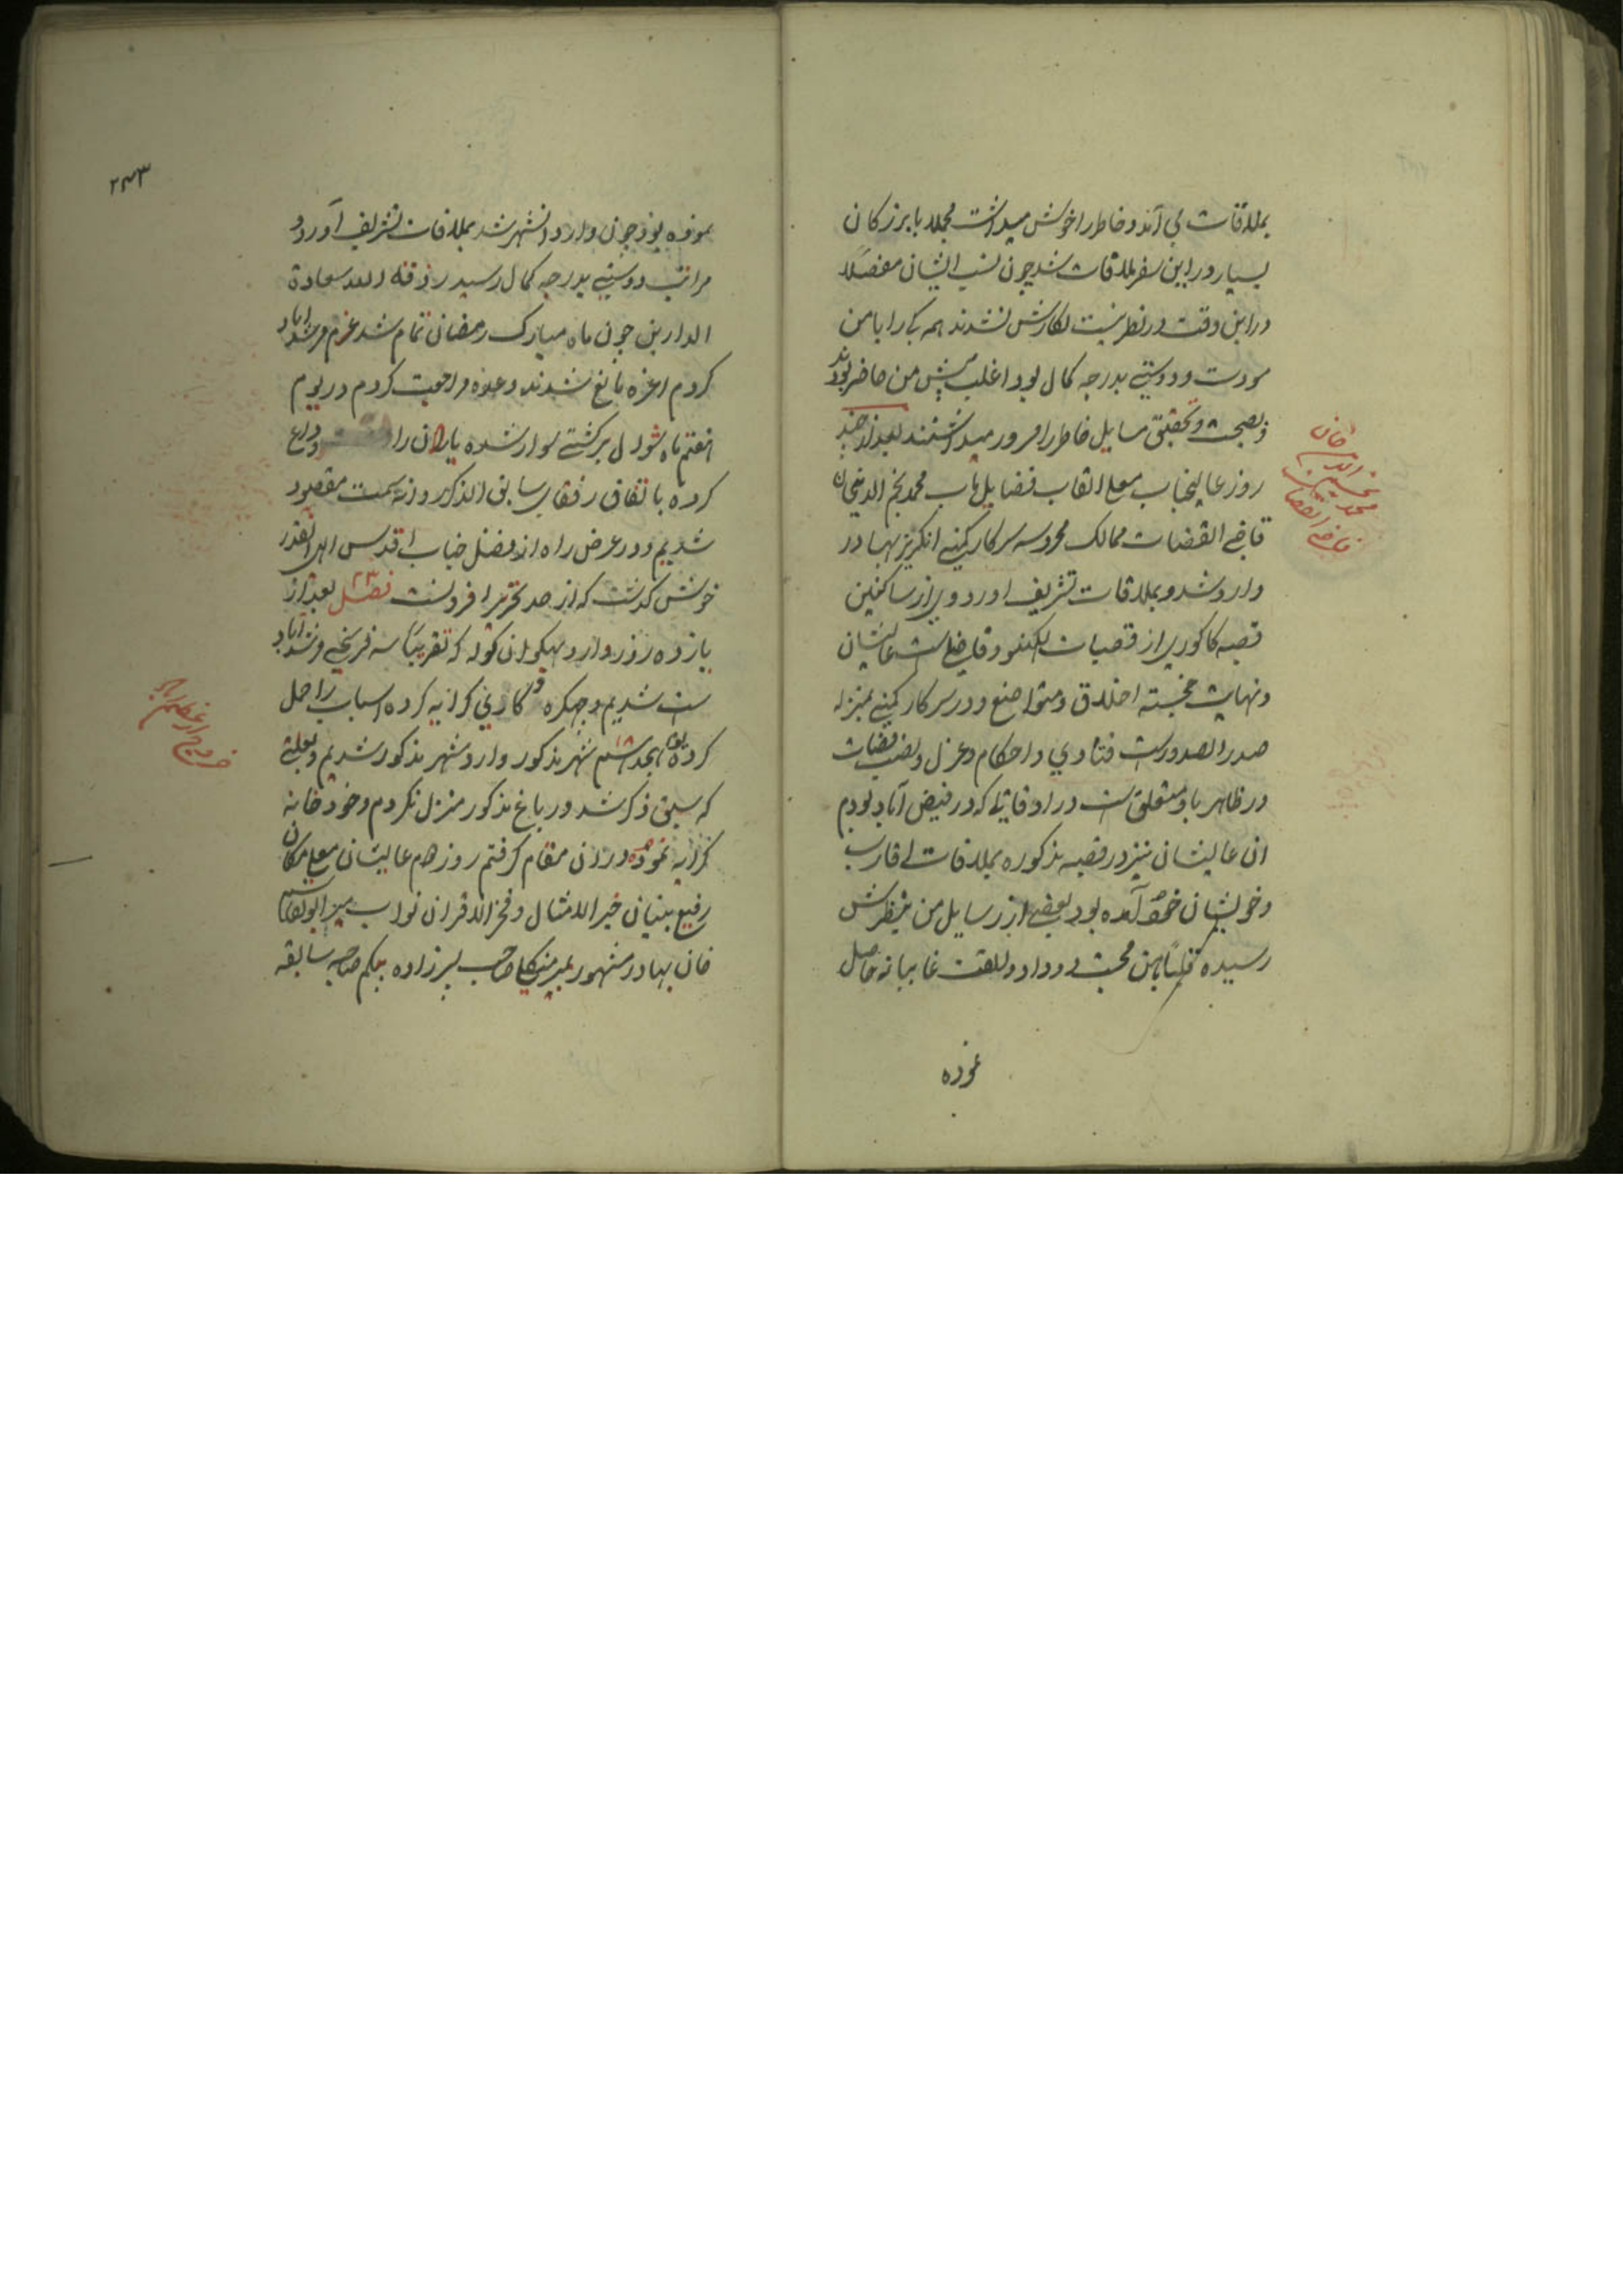 بملاقات می آمد و خاطر را خوش میداشت مجملا با بزرکان
بسیار در این سفر ملاقات شد چون نسب ایشان مفصلا
در این وقت در نظر نیست نکارش نشدند همه کی را با من
مودت و دوستی بدرجه کمال بود اغلب پیش من حاضر بودند
و بصحبت و تحقیق مسایل خاطر را مسرور میداشتند بعد از چند
روز عالیجناب معلی القاب فضایل ماب محمد نجم الدین خان
قاضی القضات ممالک محروسه سرکار کمپنی انکریز بهادر
وارد شد و بملاقات تشریف اورد وی از ساکنین
قصبه کاکوری از قصبات لکهنو و فاضلی است عالیشان
و نهایت خجسته اخلاق و متواضع و در سرکار کمپنی بمنزله
صدر الصدور است فتاوی و احکام و عزل و نصب قضات
در ظاهر باو متعلق است در اوقاتی که در فیض آباد بودم
ان عالیشان نیز در قصبه مذکوره بملاقات اقارب
و خویشان خود آمده بود بعضی از رسایل من بنظرش
رسیده بمن محبت و وداد و الفت غایبانه حاصل
نموده
محمد نجم الدین خان
قاضی القضات
۲۴۳
نموده بود چون وارد انشهر شد بملاقات تشریف آورد و
مراتب دوستی بدرجه کمال رسید رزقه الله سعادة
الدارین چون ماه مبارک رمضان تمام شد عزم مرشداباد
کردم اعزه مانع شدند وعده مراجعت کردم در یوم
هفتم ماه شوال بر کشتی سوار شده یاران را وداع
کرده باتفاق رفقای سابق الذکر روانه سمت مقصود
شدیم و در عرض راه از فضل جناب اقدس الهی انقدر
خوش کذشت که از حد تحریر افزونست فصل ۲۳ بعد از
یازده روز وارد بهکوان کوله که تقریبا سه فرسخی مرشداباد
است شدیم و چهکره و کاری کرایه کرده اسباب را حمل
کرده یوم هجدهم شهر مذکور وارد شهر مذکور شدیم و بعلتی
که سبق ذکر شد در باغ مذکور منزل نکردم و خود خانه
کرایه نموده در ان مقام کرفتم روز دهم عالیشان معلی مکان
رفیع بنیان خیر الامثال و فخر الاقران نواب میر ابوالقاسم
خان بهادر مشهور بمیر منکلی صاحب پسر زاده بیکم صاحبه سابقه